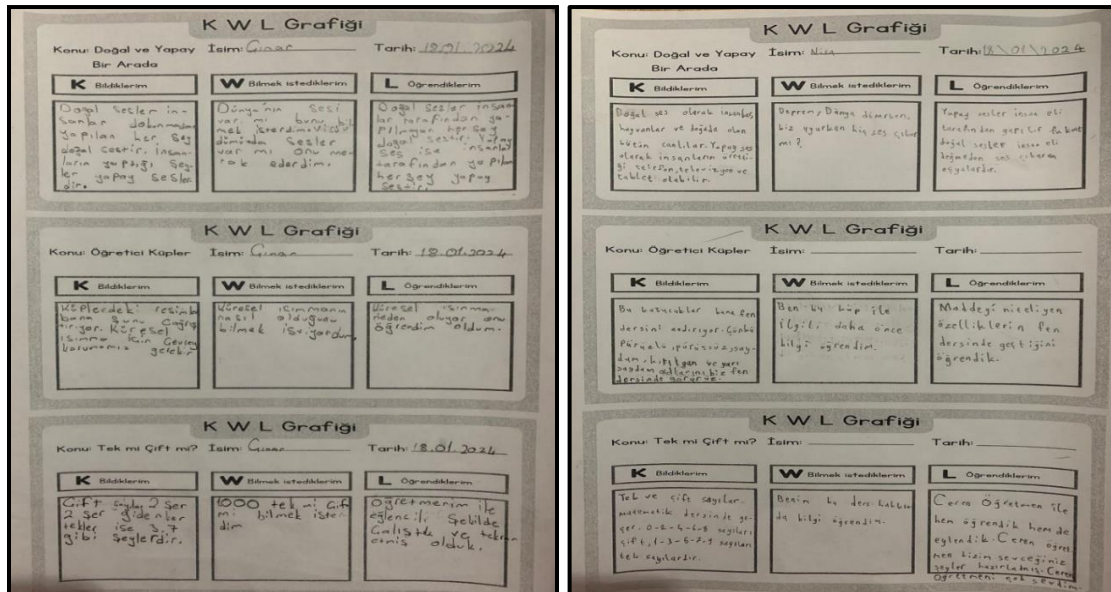 K W L Grafiği
Konu: Doğal ve Yapay Bir Arada İsim: Çınar Tarih: 18.01.2024
K Bildiklerim
Doğal sesler in-
sanlar dokunmadan
yapılan her şey
doğal sestir. İnsan-
ların yaptığı şey-
ler yapay sesler
dir.
W Bilmek istediklerim
Dünya'nın sesi
var mı bunu bil
mek isterdim. Vücu
dumuzda sesler
var mı onu me-
rak ederdim.
L Öğrendiklerim
Doğal sesler insan
lar tarafından ya-
pılmayan her şey
doğal sestir. Yapay
ses ise insanlar
tarafından yapılan
her şey yapay
sestir.
K W L Grafiği
Konu: Öğretici Küpler İsim: Çınar Tarih: 18.01.2024
K Bildiklerim
Küplerdeki resimler
bana bunu çağrış
tırıyor. Küresel
ısınma için çevreyi
korumamız gerekir
W Bilmek istediklerim
Küresel ısınmanın
nasıl olduğunu
bilmek istiyordum.
L Öğrendiklerim
Küresel ısınma
neden oluyor onu
öğrendim oldum.
K W L Grafiği
Konu: Tek mi Çift mi? İsim: Çınar Tarih: 18.01.2024
K Bildiklerim
Çift sayılar 2 şer
2 şer gidenler
tekler ise 3,7
gibi şeylerdir.
W Bilmek istediklerim
1000 tek mi çift
mi bilmek ister
dim
L Öğrendiklerim
Öğretmenim ile
eğlenceli şekilde
çalıştık ve tekrar
etmiş olduk.
K W L Grafiği
Konu: Doğal ve Yapay Bir Arada İsim: Nisa Tarih: 18\01\2024
K Bildiklerim
Doğal ses olarak insanlar,
hayvanlar ve doğada olan
bütün canlılar. Yapay ses
olarak insanların üretti-
ği telefon, televizyon ve
tablet olabilir.
W Bilmek istediklerim
Deprem, Dünya dönerken,
biz uyurken hiç ses çıkar
mı?
L Öğrendiklerim
Yapay sesler insan eli
tarafından yapılır fakat
doğal sesler insan eli
değmeden ses çıkaran
eşyalardır.
K W L Grafiği
Konu: Öğretici Küpler İsim: Tarih:
K Bildiklerim
Bu kutucuklar bana fen
dersini andırıyor. Çünkü
Pürüzlü, pürüzsüz, say-
dam, kırılgan ve yarı
saydam adlarını biz fen
dersinde görürüz.
W Bilmek istediklerim
Ben bu küp ile
ilgili daha önce
bilgi öğrendim.
L Öğrendiklerim
Maddeyi niteliyen
özelliklerin fen
dersinde geçtiğini
öğrendik.
K W L Grafiği
Konu: Tek mi Çift mi? İsim: Tarih:
K Bildiklerim
Tek ve çift sayılar.
matematik dersinde ge-
çer. 0-2-4-6-8 sayıları
çift, 1-3-5-7-9 sayıları
tek sayılardır.
W Bilmek istediklerim
Benim bu ders hakkın
da bilgi öğrendim.
L Öğrendiklerim
Ceren Öğretmen ile
hem öğrendik hem de
eylendik. Ceren öğret
men bizim seveceğimiz
şeyler hazırlamış. Ceren
Öğretmeni çok sevdim.